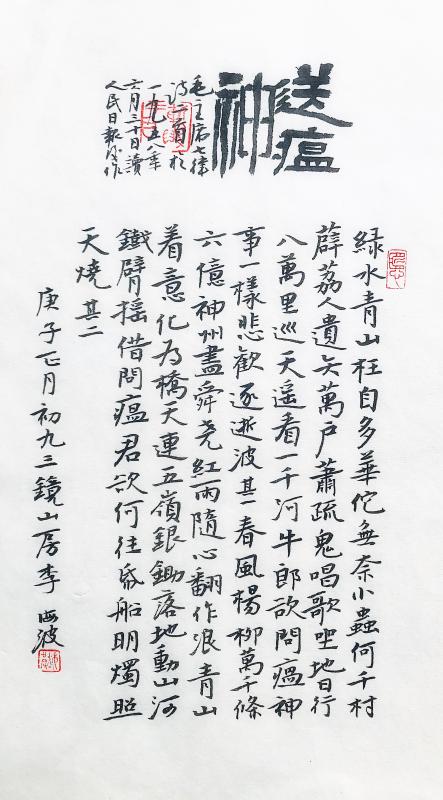 送瘟
神
毛主席七律
詩二首於
一九五八年
六月三十日讀
人民日報後作
綠水青山枉自多華佗無奈小蟲何千村
薜荔人遺矢萬戶蕭疏鬼唱歌坐地日行
八萬里巡天遥看一千河牛郎欲問瘟神
事一樣悲歡逐逝波其一春風楊柳萬千條
六億神州盡舜尧紅雨隨心翻作浪青山
着意化为橋天連五嶺銀鋤落地動山河
鐵臂摇借問瘟君欲何往帋船明燭照
天燒其二
庚子正月初九三鏡山房李海波